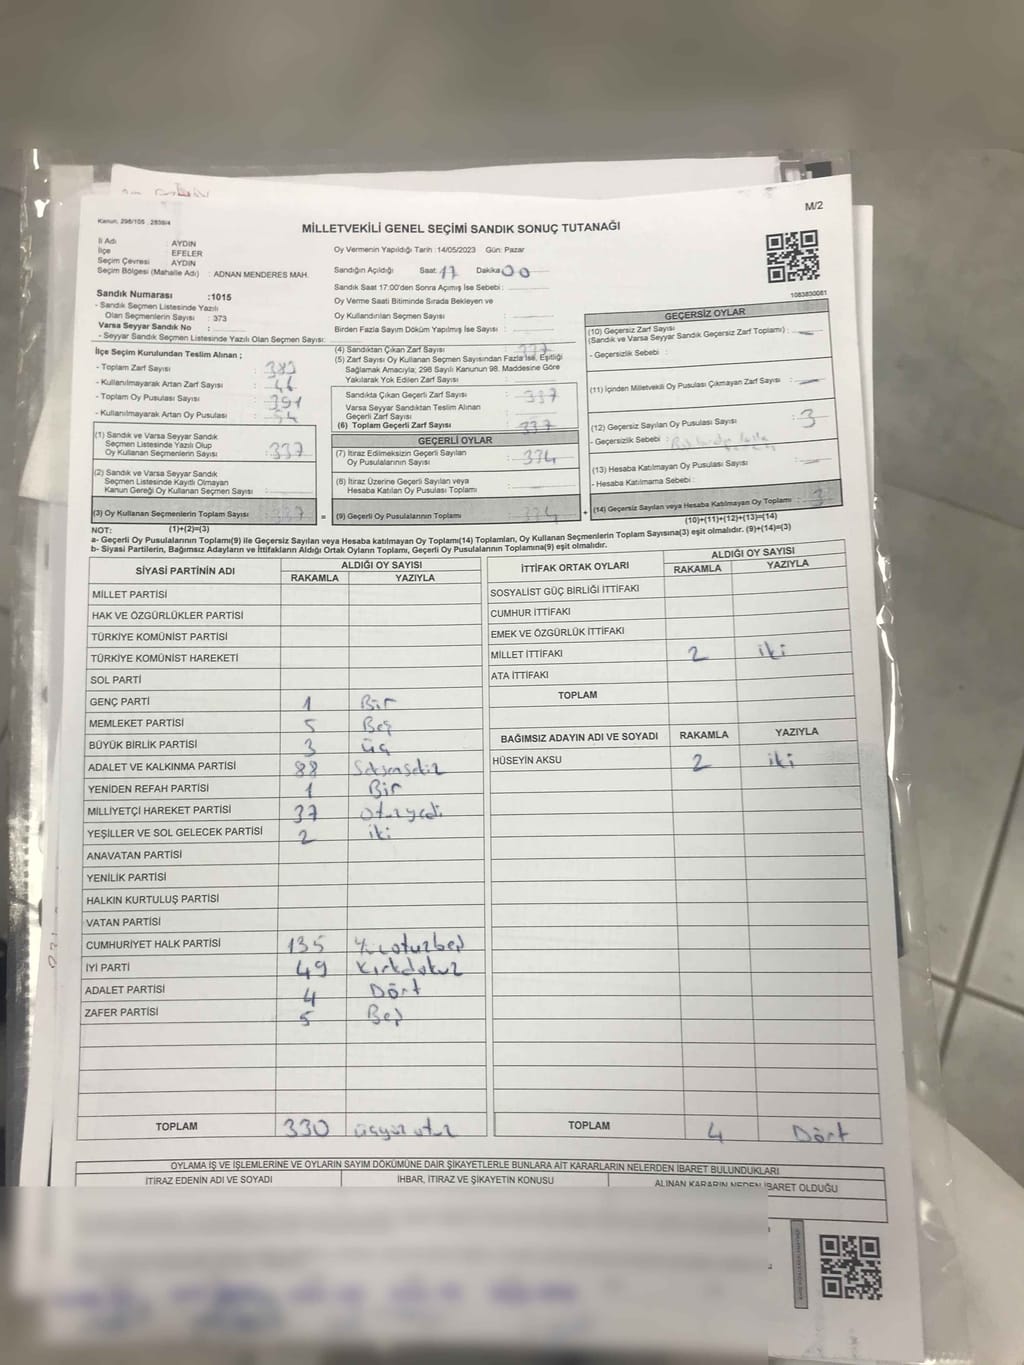 M/2
Kanun, 298/105 , 2839/4
MİLLETVEKİLİ GENEL SEÇİMİ SANDIK SONUÇ TUTANAĞI
İl Adı : AYDIN
İlçe : EFELER
Seçim Çevresi : AYDIN
Seçim Bölgesi (Mahalle Adı) : ADNAN MENDERES MAH.
Sandık Numarası :1015
- Sandık Seçmen Listesinde Yazılı
Olan Seçmenlerin Sayısı : 373
Varsa Seyyar Sandık No :
- Seyyar Sandık Seçmen Listesinde Yazılı Olan Seçmen Sayısı:
Oy Vermenin Yapıldığı Tarih :14/05/2023 Gün: Pazar
Sandığın Açıldığı Saat: 17 Dakika: 00
Sandık Saat 17:00'den Sonra Açımış İse Sebebi :
Oy Verme Saati Bitiminde Sırada Bekleyen ve
Oy Kullandırılan Seçmen Sayısı :
Birden Fazla Sayım Döküm Yapılmış İse Sayısı :
1083830081
İlçe Seçim Kurulundan Teslim Alınan ;
- Toplam Zarf Sayısı : 383
- Kullanılmayarak Artan Zarf Sayısı : 46
- Toplam Oy Pusulası : 391
- Kullanılmayarak Artan Oy Pusulası : 54
(1) Sandık ve Varsa Seyyar Sandık
Seçmen Listesinde Yazılı Olup
Oy Kullanan Seçmenlerin Sayısı : 337
(2) Sandık ve Varsa Seyyar Sandık
Seçmen Listesinde Kayıtlı Olmayan
Kanun Gereği Oy Kullanan Seçmen Sayısı :
(3) Oy Kullanan Seçmenlerin Toplam Sayısı : 337
(1)+(2)=(3)
(4) Sandıktan Çıkan Zarf Sayısı : 337
(5) Zarf Sayısı Oy Kullanan Seçmen Sayısından Fazla İse, Eşitliği
Sağlamak Amacıyla; 298 Sayılı Kanunun 98. Maddesine Göre
Yakılarak Yok Edilen Zarf Sayısı :
Sandıkta Çıkan Geçerli Zarf Sayısı : 337
Varsa Seyyar Sandıktan Teslim Alınan
Geçerli Zarf Sayısı :
(6) Toplam Geçerli Zarf Sayısı : 337
GEÇERLİ OYLAR
(7) İtiraz Edilmeksizin Geçerli Sayılan
Oy Pusulalarının Sayısı : 334
(8) İtiraz Üzerine Geçerli Sayılan veya
Hesaba Katılan Oy Pusulası Toplamı :
= (9) Geçerli Oy Pusulalarının Toplamı : 334
GEÇERSİZ OYLAR
(10) Geçersiz Zarf Sayısı
(Sandık ve Varsa Seyyar Sandık Geçersiz Zarf Toplamı) :
- Geçersizlik Sebebi :
(11) İçinden Milletvekili Oy Pusulası Çıkmayan Zarf Sayısı :
(12) Geçersiz Sayılan Oy Pusulası Sayısı : 3
- Geçersizlik Sebebi :
(13) Hesaba Katılmayan Oy Pusulası Sayısı :
- Hesaba Katılmama Sebebi :
+ (14) Geçersiz Sayılan veya Hesaba Katılmayan Oy Toplamı : 3
(10)+(11)+(12)+(13)=(14)
NOT:
a- Geçerli Oy Pusulalarının Toplamı(9) ile Geçersiz Sayılan veya Hesaba katılmayan Oy Toplamı(14) Toplamları, Oy Kullanan Seçmenlerin Toplam Sayısına(3) eşit olmalıdır. (9)+(14)=(3)
b- Siyasi Partilerin, Bağımsız Adayların ve İttifakların Aldığı Ortak Oyların Toplamı, Geçerli Oy Pusulalarının Toplamına(9) eşit olmalıdır.
SİYASİ PARTİNİN ADI ALDIĞI OY SAYISI
RAKAMLA YAZIYLA
MİLLET PARTİSİ
HAK VE ÖZGÜRLÜKLER PARTİSİ
TÜRKİYE KOMÜNİST PARTİSİ
TÜRKİYE KOMÜNİST HAREKETİ
SOL PARTİ
GENÇ PARTİ 1 Bir
MEMLEKET PARTİSİ 5 Beş
BÜYÜK BİRLİK PARTİSİ 3 üç
ADALET VE KALKINMA PARTİSİ 88 Seksensekiz
YENİDEN REFAH PARTİSİ 1 Bir
MİLLİYETÇİ HAREKET PARTİSİ 37 otuzyedi
YEŞİLLER VE SOL GELECEK PARTİSİ 2 iki
ANAVATAN PARTİSİ
YENİLİK PARTİSİ
HALKIN KURTULUŞ PARTİSİ
VATAN PARTİSİ
CUMHURİYET HALK PARTİSİ 135 Yüzotuzbeş
İYİ PARTİ 49 Kırkdokuz
ADALET PARTİSİ 4 Dört
ZAFER PARTİSİ 5 Beş
TOPLAM 330 üçyüz otuz
İTTİFAK ORTAK OYLARI ALDIĞI OY SAYISI
RAKAMLA YAZIYLA
SOSYALİST GÜÇ BİRLİĞİ İTTİFAKI
CUMHUR İTTİFAKI
EMEK VE ÖZGÜRLÜK İTTİFAKI
MİLLET İTTİFAKI 2 iki
ATA İTTİFAKI
TOPLAM
BAĞIMSIZ ADAYIN ADI VE SOYADI RAKAMLA YAZIYLA
HÜSEYİN AKSU 2 iki
TOPLAM 4 Dört
OYLAMA İŞ VE İŞLEMLERİNE VE OYLARIN SAYIM DÖKÜMÜNE DAİR ŞİKAYETLERLE BUNLARA AİT KARARLARIN NELERDEN İBARET BULUNDUKLARI
İTİRAZ EDENİN ADI VE SOYADI İHBAR, İTİRAZ VE ŞİKAYETİN KONUSU ALINAN KARARIN NEDEN İBARET OLDUĞU